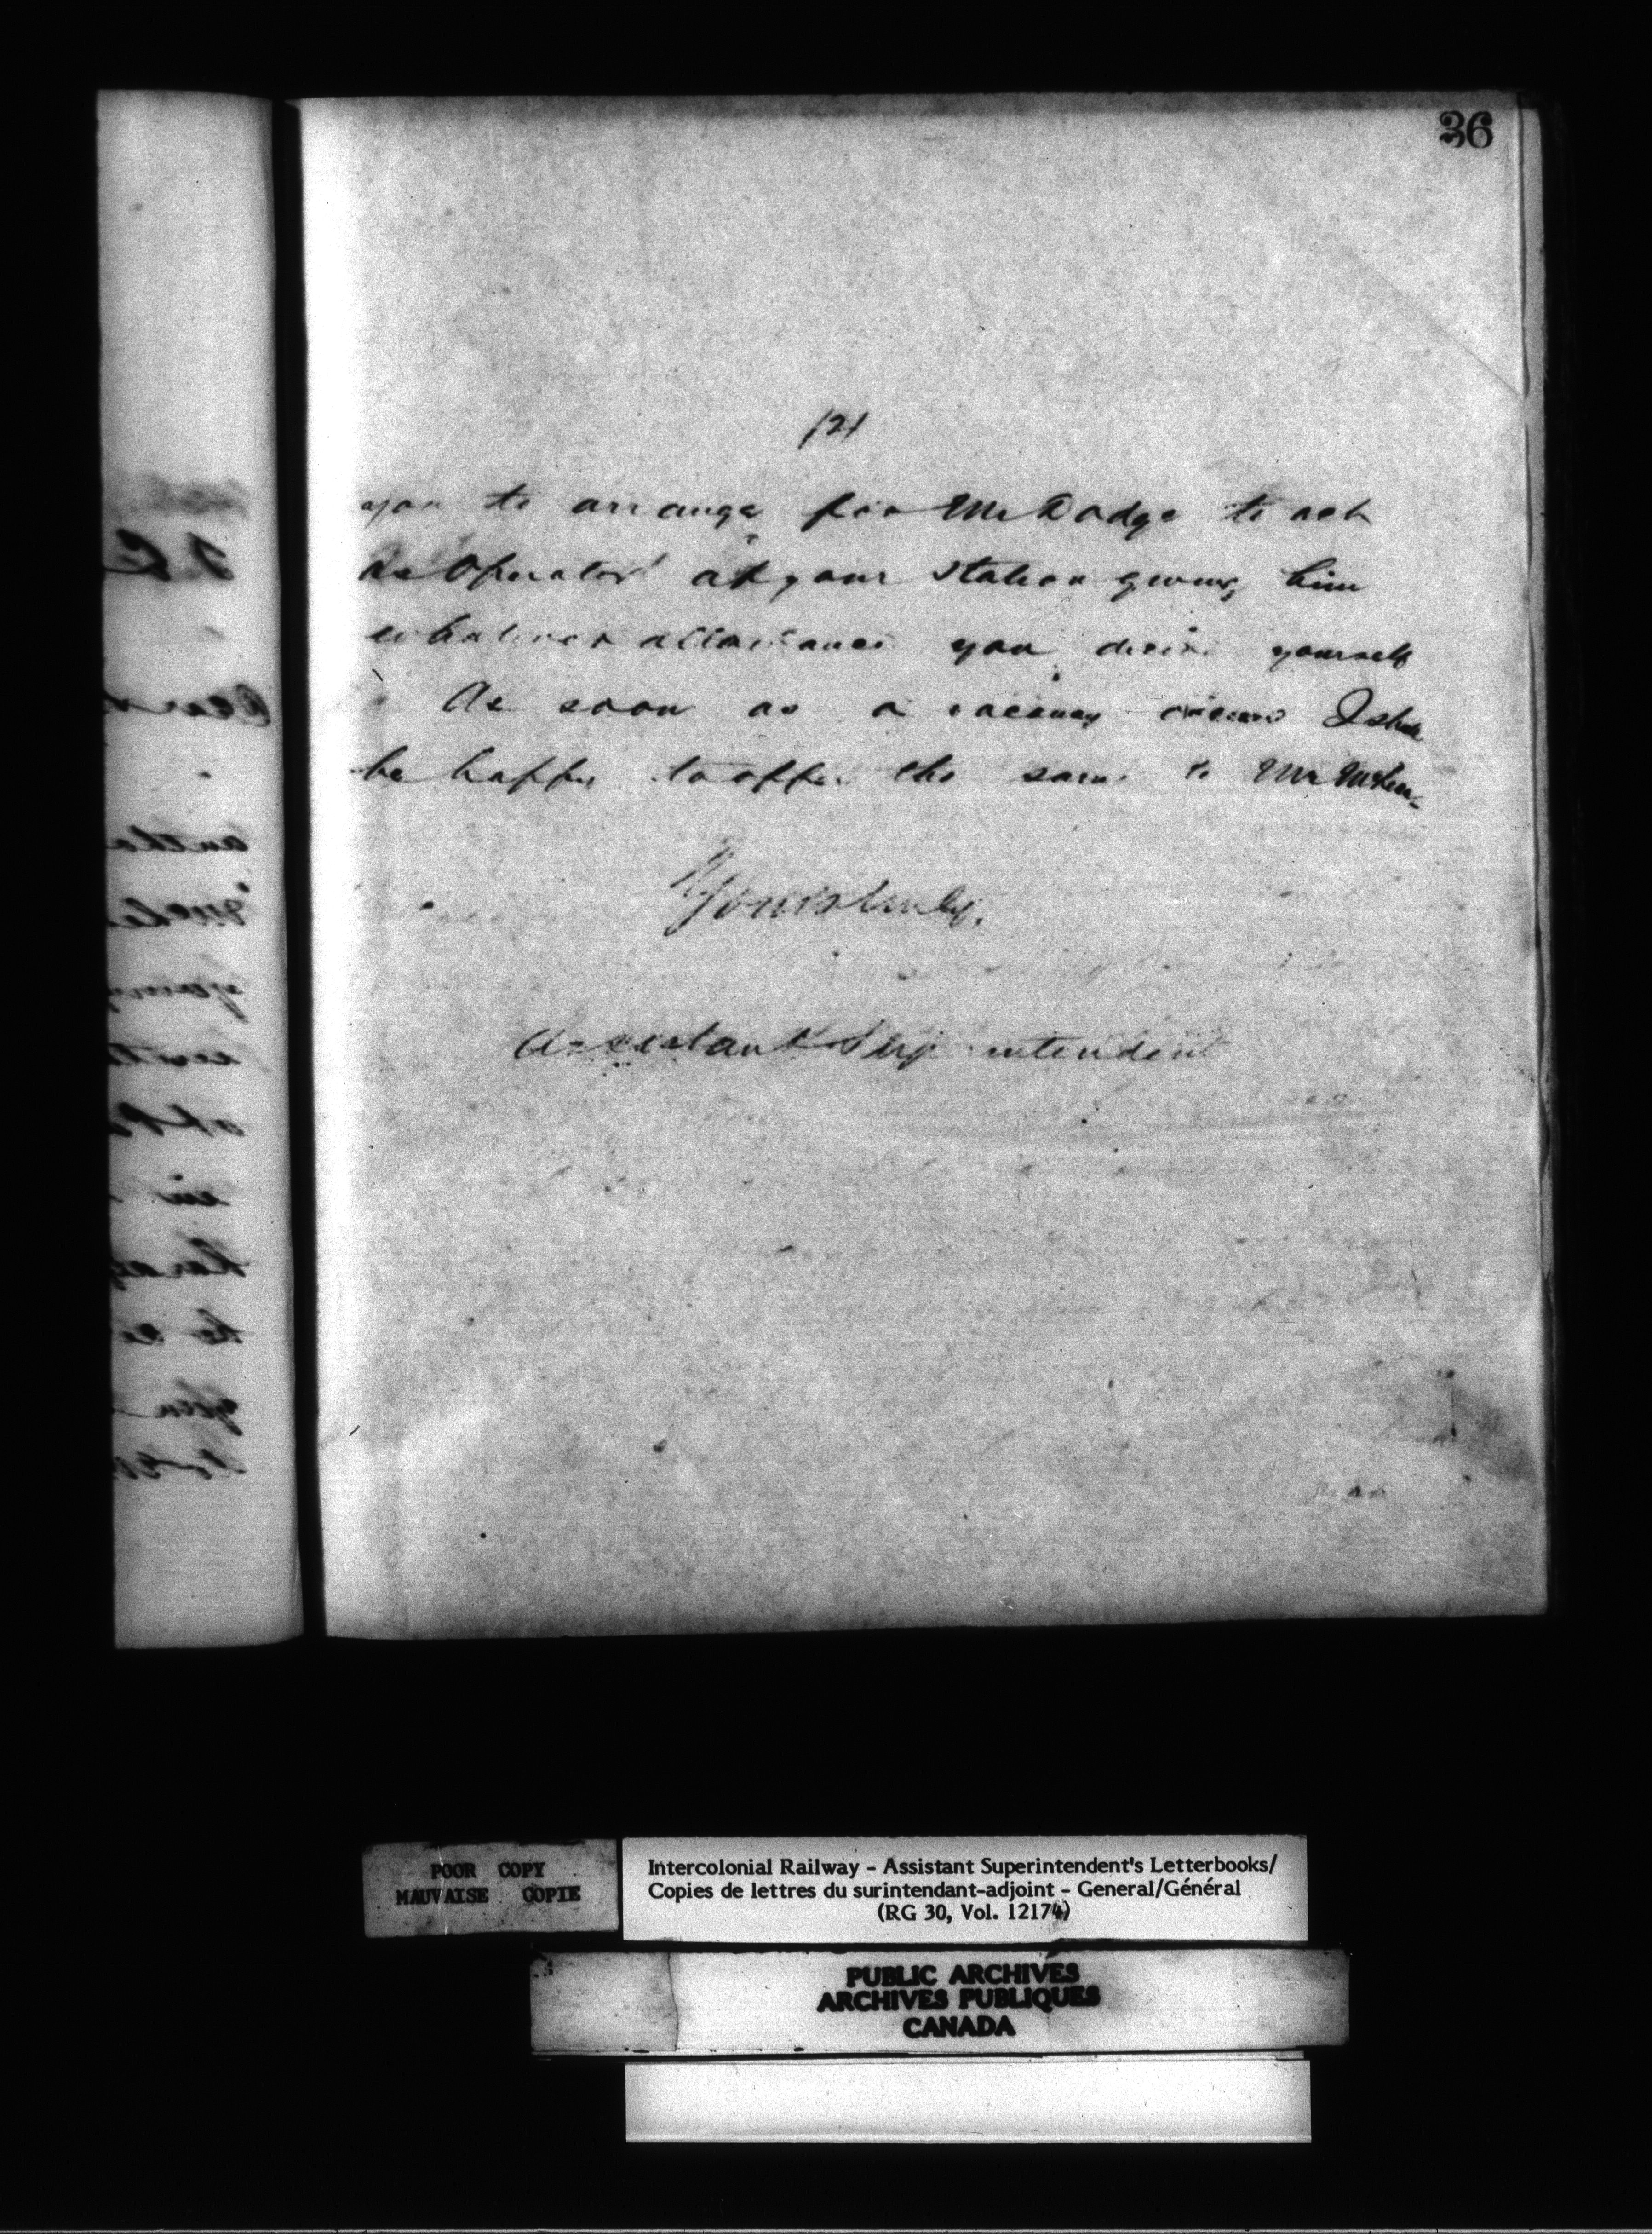 36
/2/
you to arrange for Mr Dodge to act
as Operator at your Station giving him
whatever allowance you desire yourself
As soon as a vacancy occurs I shall
be happy to offer the same to Mr
Yours truly,
Assistant Superintendent
POOR COPY
MAUVAISE COPIE
Intercolonial Railway - Assistant Superintendent's Letterbooks/
Copies de lettres du surintendant-adjoint - General/Général
(RG 30, Vol. 12174)
PUBLIC ARCHIVES
ARCHIVES PUBLIQUES
CANADA